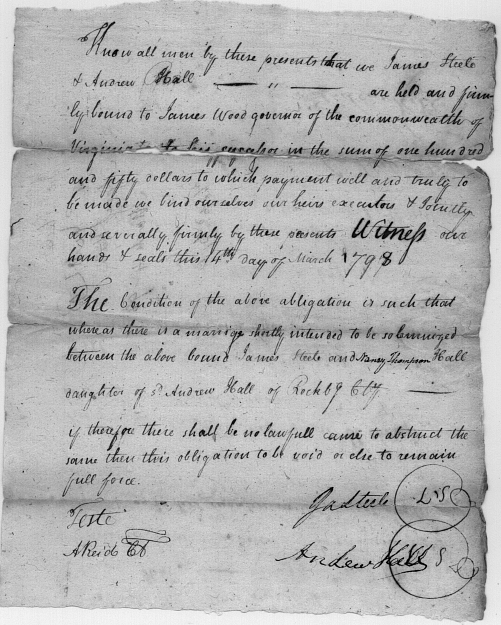 Know all men by these presents that we James Steele
& Andrew Hall — " — are held and firm-
ly bound to James Wood governor of the commonwealth of
Virginia to his successor in the sum of one hundred
and fifty dollars to which payment well and truly to
be made we bind ourselves our heirs executors & Jointly
and severally, firmly by these presents Witness our
hands & seals this 14th day of March 1798
The Condition of the above obligation is such that
whereas there is a marriage shortly intended to be solemnized
between the above bound James Steele and Nancy Thompson Hall
daughter of sd Andrew Hall of Rockbg Cty —
if therefore there shall be no lawfull cause to obstruct the
same then this obligation to be void or else to remain
full force.
Teste
Jas Steele LS
A Reid
Andrew Hall LS